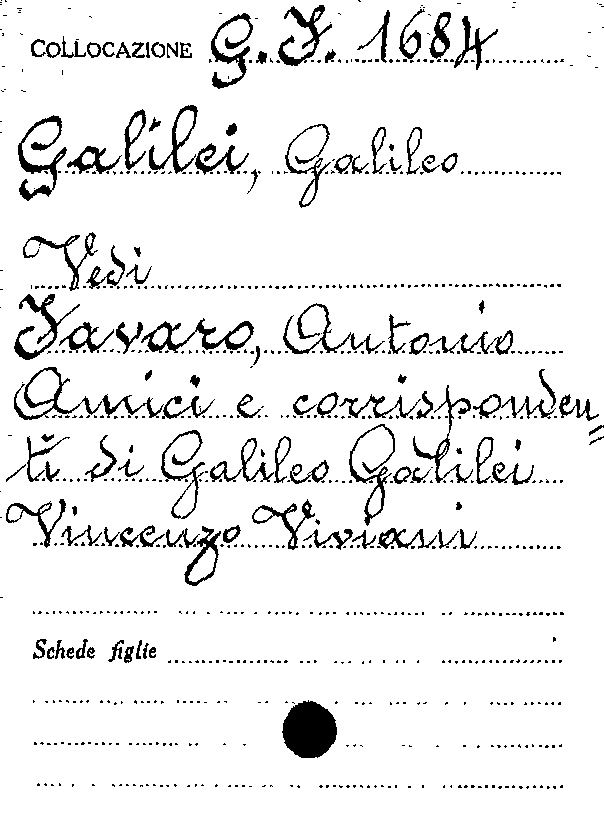 COLLOCAZIONE G. F. 1684
Galilei, Galileo
Vedi
Favaro, Antonio
Amici e corrisponden=
ti di Galileo Galilei
Vincenzo Viviani
Schede figlie